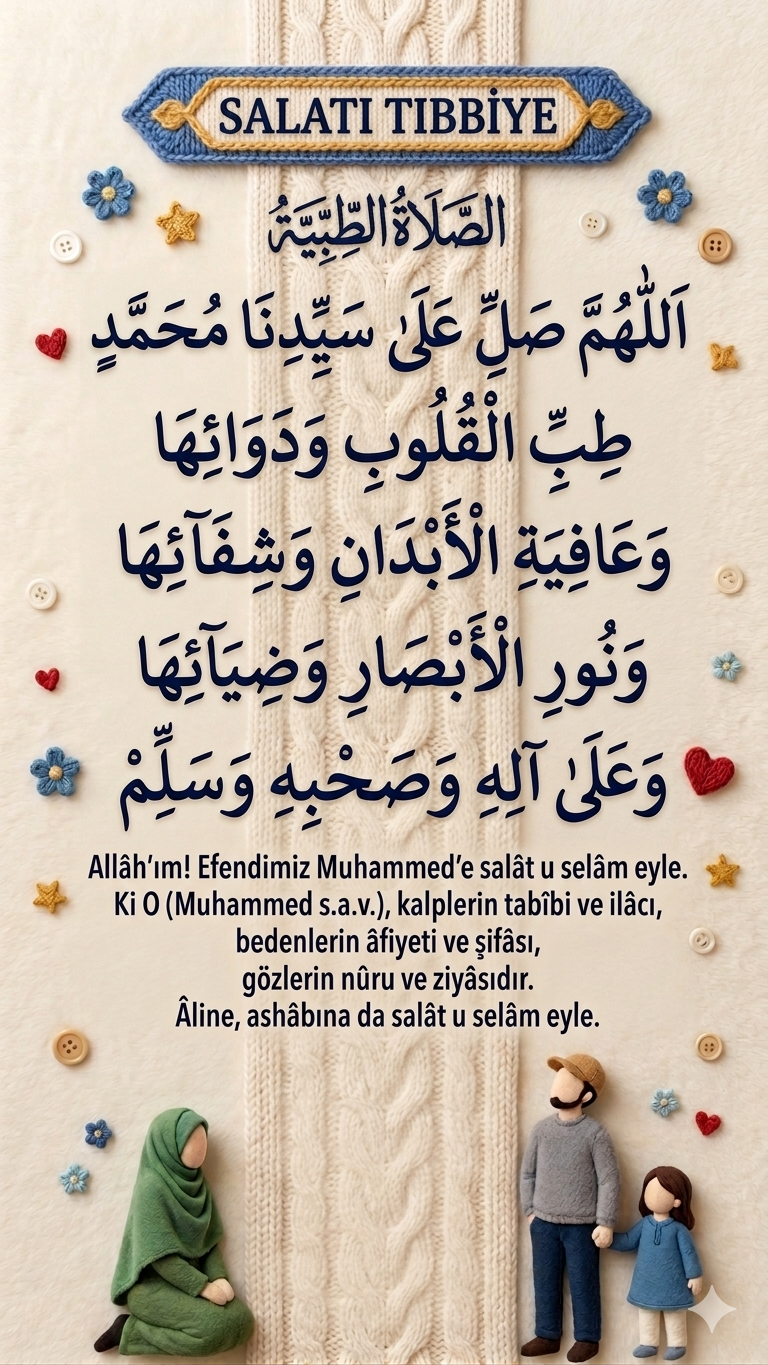 SALATI TIBBİYE
الصَّلَاةُ الطِّبِّيَّةُ
اَللّٰهُمَّ صَلِّ عَلَىٰ سَيِّدِنَا مُحَمَّدٍ
طِبِّ الْقُلُوبِ وَدَوَائِهَا
وَعَافِيَةِ الْأَبْدَانِ وَشِفَآئِهَا
وَنُورِ الْأَبْصَارِ وَضِيَآئِهَا
وَعَلَىٰ آلِهِ وَصَحْبِهِ وَسَلِّمْ
Allâh’ım! Efendimiz Muhammed’e salât u selâm eyle.
Ki O (Muhammed s.a.v.), kalplerin tabîbi ve ilâcı,
bedenlerin âfiyeti ve şifâsı,
gözlerin nûru ve ziyâsıdır.
Âline, ashâbına da salât u selâm eyle.